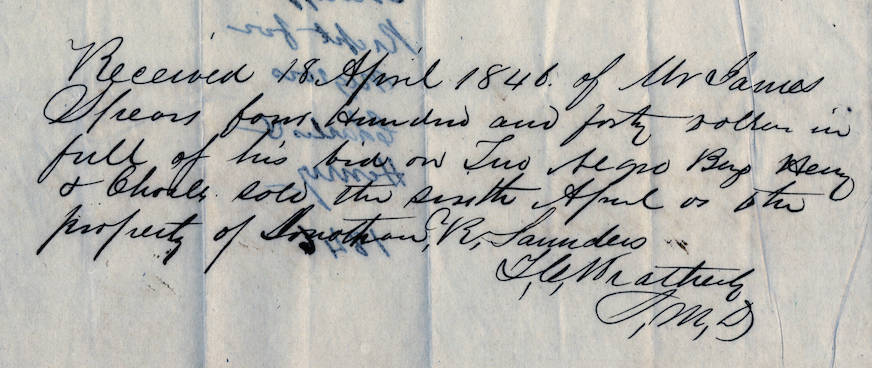 Received 18 April 1846. of Mr James
Spears four Hundred and forty dollars in
full of his bid on Two Negro Boys Henry
& Charles sold the sixth April as the
property of Jonathan R, Saunders
T, C,